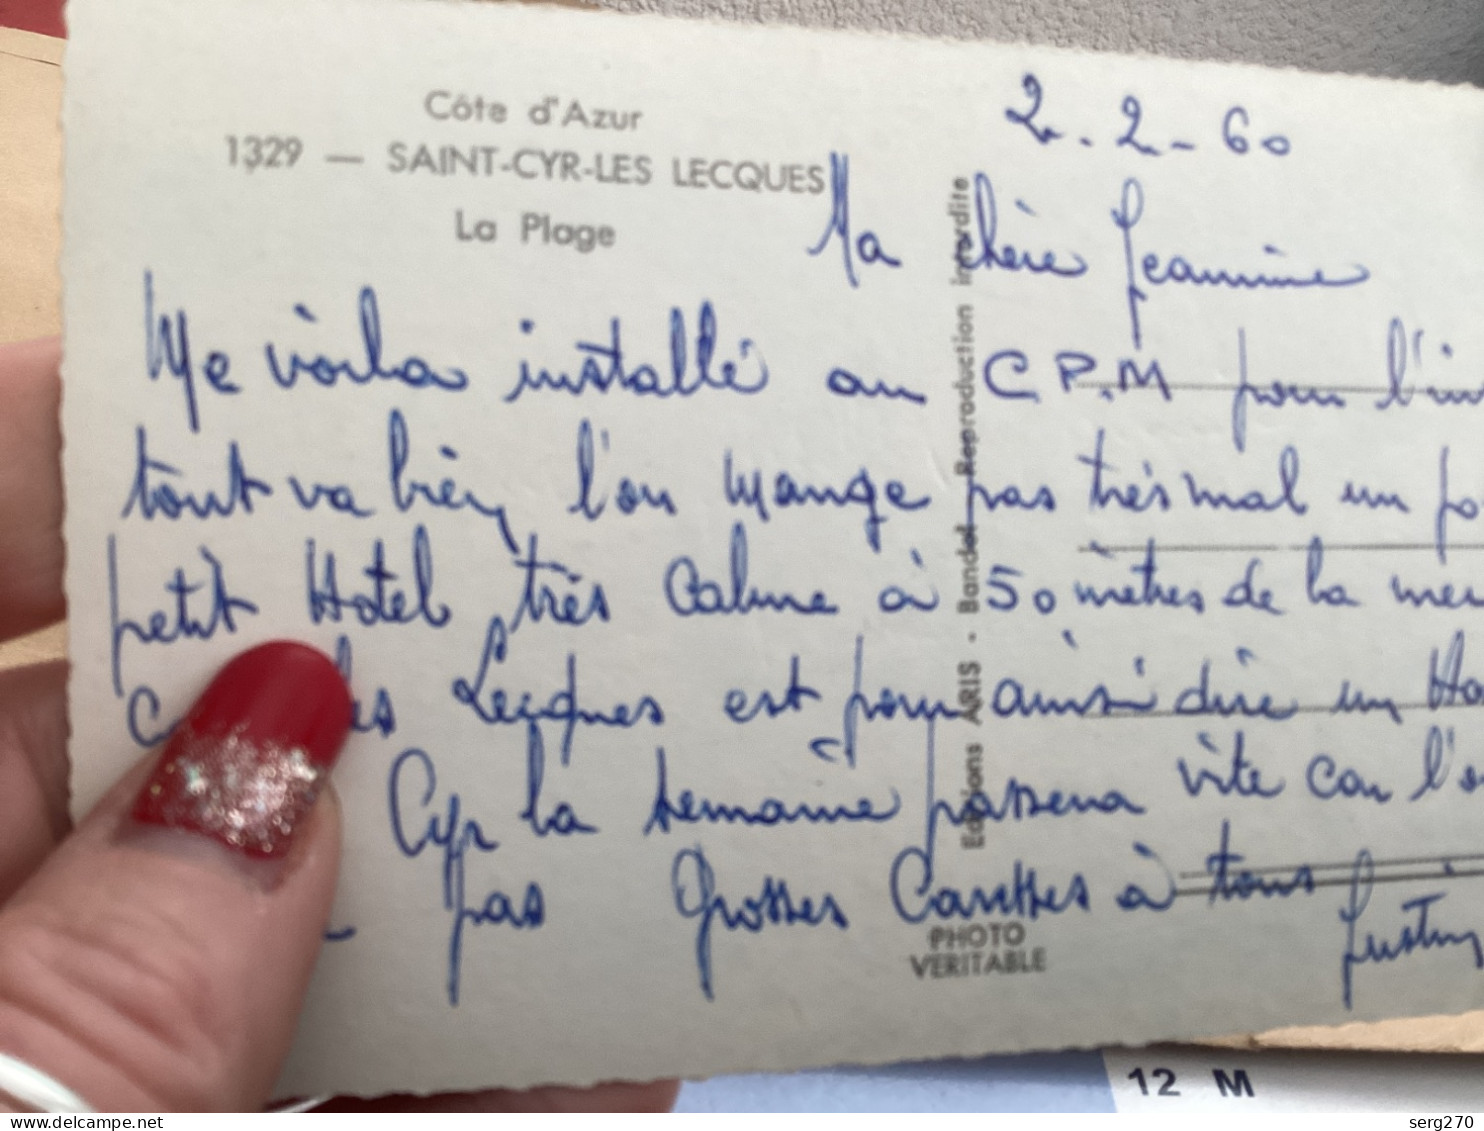 Côte d'Azur
1329 — SAINT-CYR-LES LECQUES
La Plage
2.2-60
Ma chère Jeannine
Me voila installé au C P.M pour l'in
tout va bien, l'on mange pas très mal un
petit Hotel très calme à 50 mètres de la mer
les Lecques est pour ainsi dire un
Cyr la semaine passera vite car
pas Grosses Caresses à tous
Justin
Editions ARIS - Bandol Reproduction interdite
PHOTO
VERITABLE
12 M
serg270
delcampe.net